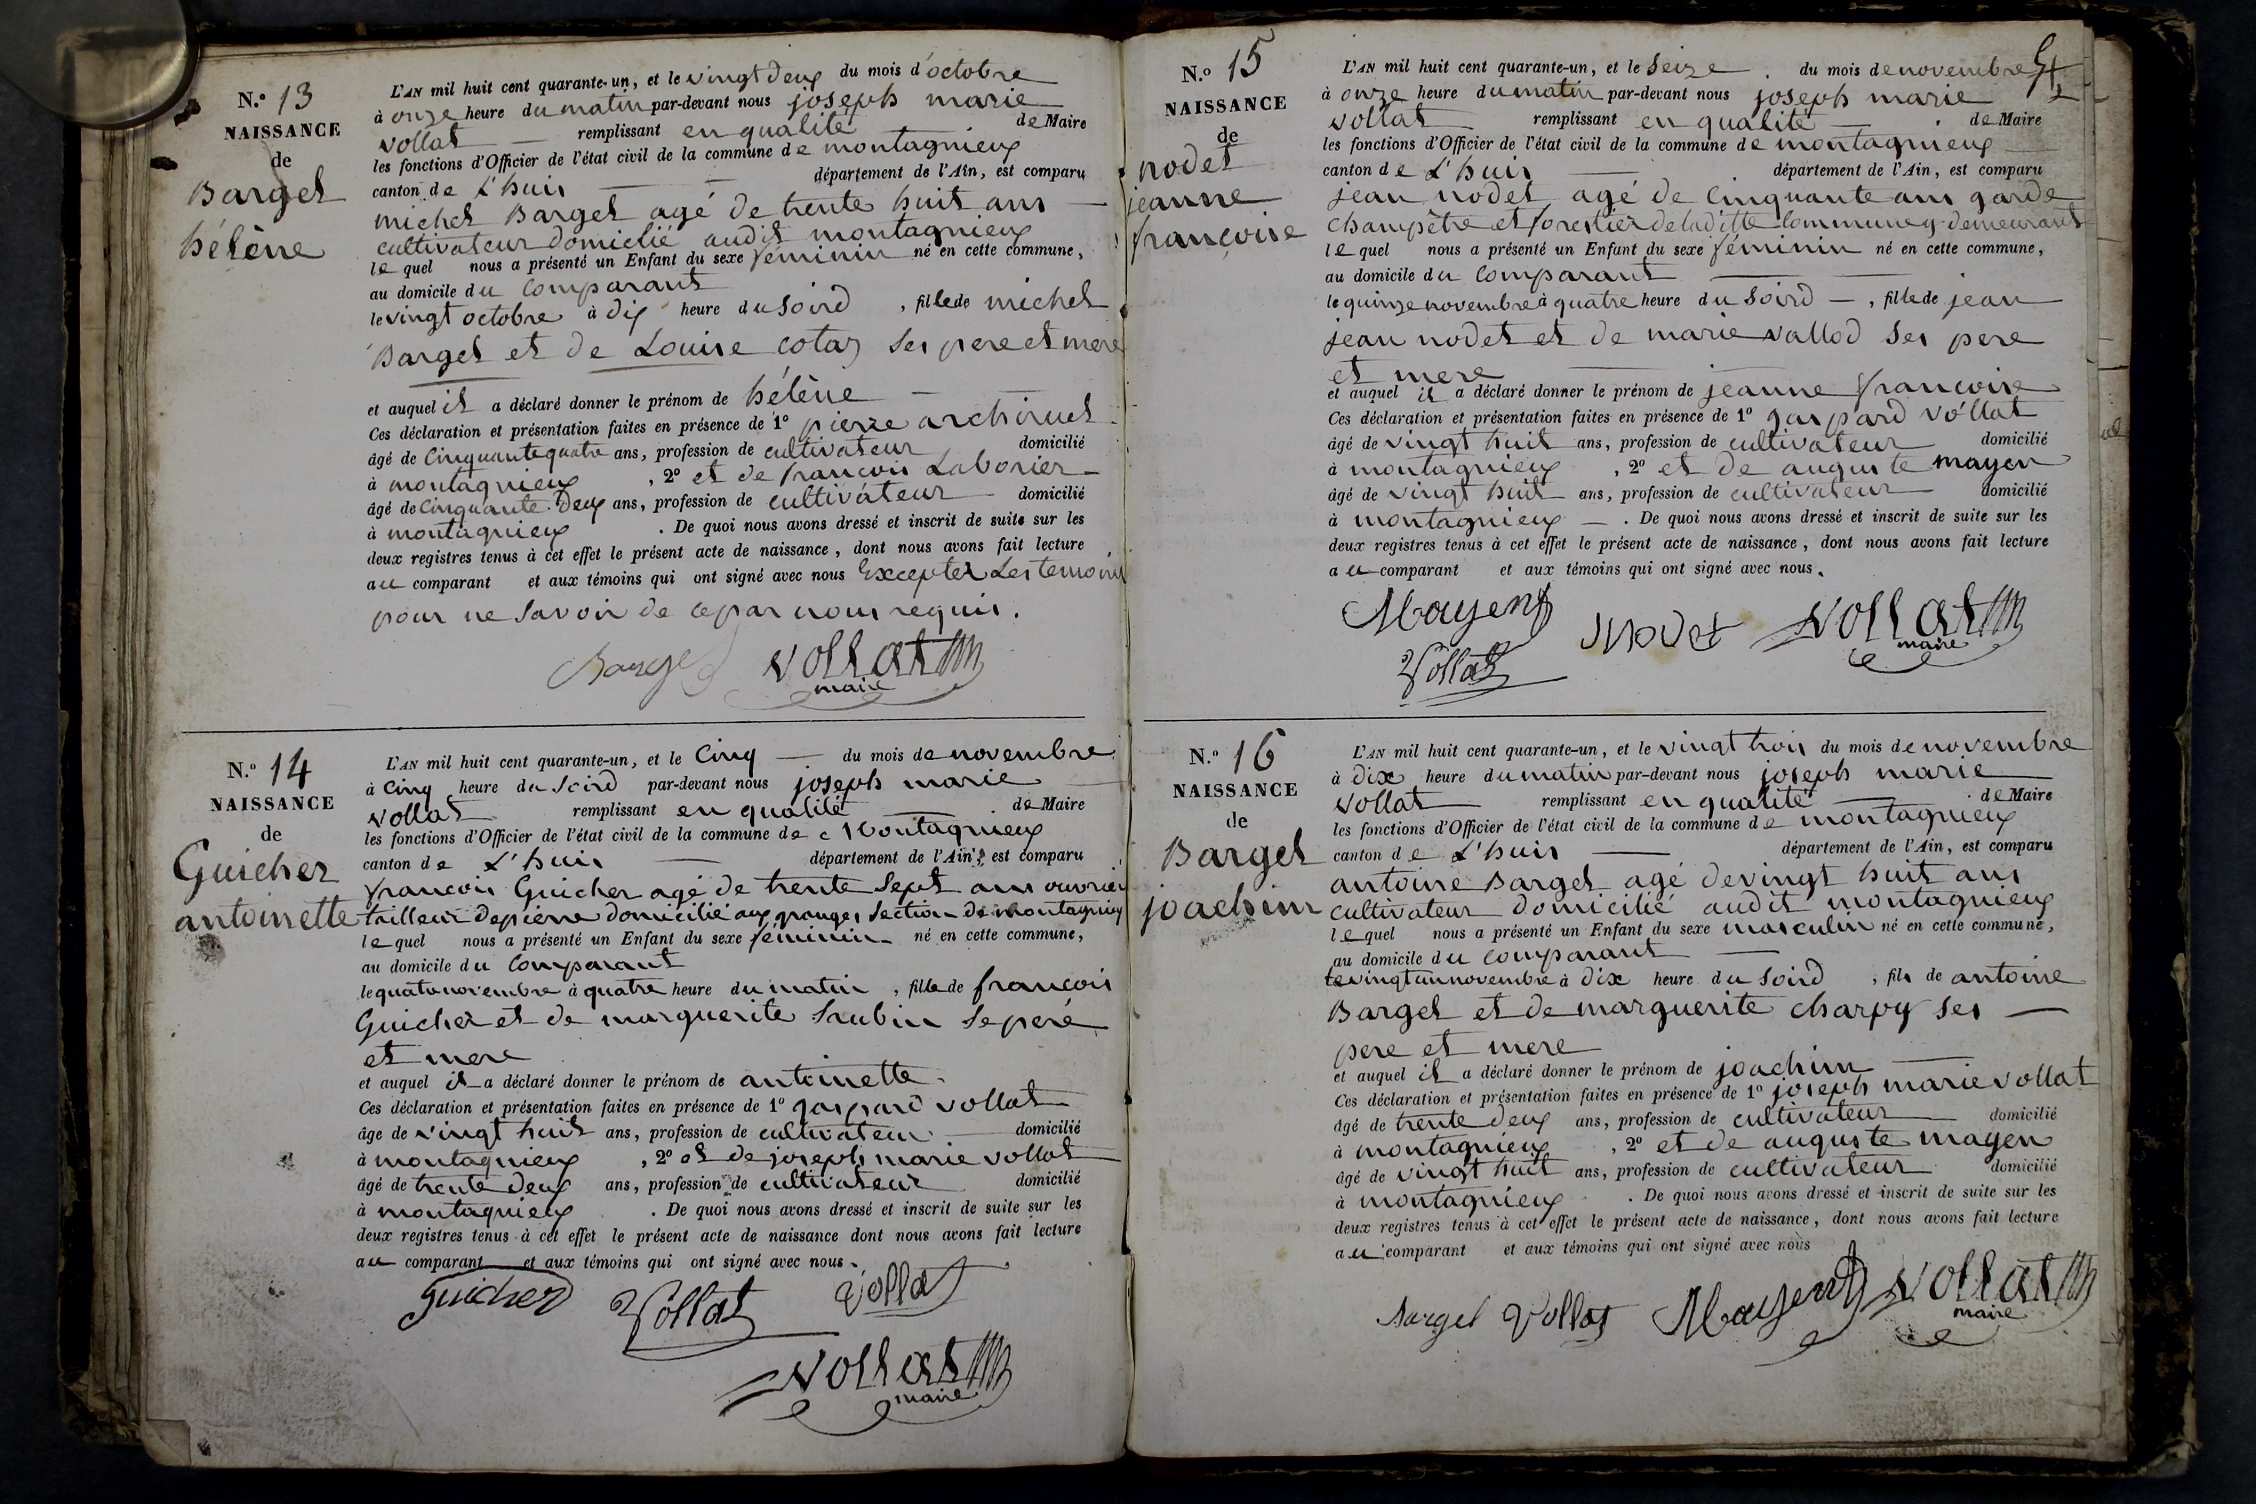 N.º 13
NAISSANCE
de
Barget
hélène
L'AN mil huit cent quarante-un, et le vingt deux du mois d'octobre
à onze heure du matin par-devant nous joseph marie
vollat remplissant en qualité de Maire
les fonctions d'Officier de l'état civil de la commune de montagnieux
canton de L'huis département de l'Ain, est comparu
michel Barget agé de trente huit ans
cultivateur domicilié audit montagnieux
le quel nous a présenté un Enfant du sexe féminin né en cette commune,
au domicile du comparant
le vingt octobre à dix heure du soird, fille de michel
Barget et de Louise cotaz ses pere et mere
et auquel il a déclaré donner le prénom de hélène
Ces déclaration et présentation faites en présence de 1º pierre archinet
âgé de cinquante quatre ans, profession de cultivateur domicilié
à montagnieux, 2º et de francois Laborier
âgé de cinquante deux ans, profession de cultivateur domicilié
à montagnieux. De quoi nous avons dressé et inscrit de suite sur les
deux registres tenus à cet effet le présent acte de naissance, dont nous avons fait lecture
au comparant et aux témoins qui ont signé avec nous Excepter Les temoins
pour ne savoir de ce par nous requis.
Barget vollat
maire
N.º 14
NAISSANCE
de
Guicher
antoinette
L'AN mil huit cent quarante-un, et le cinq du mois de novembre
à cinq heure du soird par-devant nous joseph marie
vollat remplissant en qualité de Maire
les fonctions d'Officier de l'état civil de la commune de Montagnieux
canton de L'huis département de l'Ain, est comparu
francois Guicher agé de trente sept ans ouvrier
tailleur de pierre domicilié aux granges section de montagnieux
le quel nous a présenté un Enfant du sexe féminin né en cette commune,
au domicile du comparant
le quatre novembre à quatre heure du matin, fille de francois
Guicher et de marguerite se pere
et mere
et auquel il a déclaré donner le prénom de antoinette.
Ces déclaration et présentation faites en présence de 1º gaspard vollat
âge de vingt huit ans, profession de cultivateur domicilié
à montagnieux, 2º et de joseph marie vollat
âgé de trente deux ans, profession de cultivateur domicilié
à montagnieux. De quoi nous avons dressé et inscrit de suite sur les
deux registres tenus à cet effet le présent acte de naissance dont nous avons fait lecture
au comparant et aux témoins qui ont signé avec nous.
Guicher Vollat Vollat
vollat
maire
N.º 15
NAISSANCE
de
nodet
jeanne
françoise
L'AN mil huit cent quarante-un, et le seize du mois de novembre
à onze heure du matin par-devant nous joseph marie
vollat remplissant en qualité de Maire
les fonctions d'Officier de l'état civil de la commune de montagnieux
canton de L'huis département de l'Ain, est comparu
jean nodet agé de cinquante ans garde
champêtre et forestier de laditte commune y demeurant
le quel nous a présenté un Enfant du sexe féminin né en cette commune,
au domicile du comparant
le quinze novembre à quatre heure du soird, fille de jean
jean nodet et de marie vallod ses pere
et mere
et auquel il a déclaré donner le prénom de jeanne francoise
Ces déclaration et présentation faites en présence de 1º gaspard vollat
âgé de vingt huit ans, profession de cultivateur domicilié
à montagnieux, 2º et de auguste mayen
âgé de vingt huit ans, profession de cultivateur domicilié
à montagnieux. De quoi nous avons dressé et inscrit de suite sur les
deux registres tenus à cet effet le présent acte de naissance, dont nous avons fait lecture
au comparant et aux témoins qui ont signé avec nous.
Mayen Nodet vollat
Vollat maire
N.º 16
NAISSANCE
de
Barget
joachim
L'AN mil huit cent quarante-un, et le vingt trois du mois de novembre
à dix heure du matin par-devant nous joseph marie
vollat remplissant en qualité de Maire
les fonctions d'Officier de l'état civil de la commune de montagnieux
canton de L'huis département de l'Ain, est comparu
antoine Barget agé de vingt huit ans
cultivateur domicilié audit montagnieux
le quel nous a présenté un Enfant du sexe masculin né en cette commune,
au domicile du comparant
le vingt un novembre à dix heure du soird, fils de antoine
Barget et de marguerite charpy ses
pere et mere
et auquel il a déclaré donner le prénom de joachim
Ces déclaration et présentation faites en présence de 1º joseph marie vollat
âgé de trente deux ans, profession de cultivateur domicilié
à montagnieux, 2º et de auguste mayen
âgé de vingt huit ans, profession de cultivateur domicilié
à montagnieux. De quoi nous avons dressé et inscrit de suite sur les
deux registres tenus à cet effet le présent acte de naissance, dont nous avons fait lecture
au comparant et aux témoins qui ont signé avec nous
Barget Vollat Mayen vollat
maire